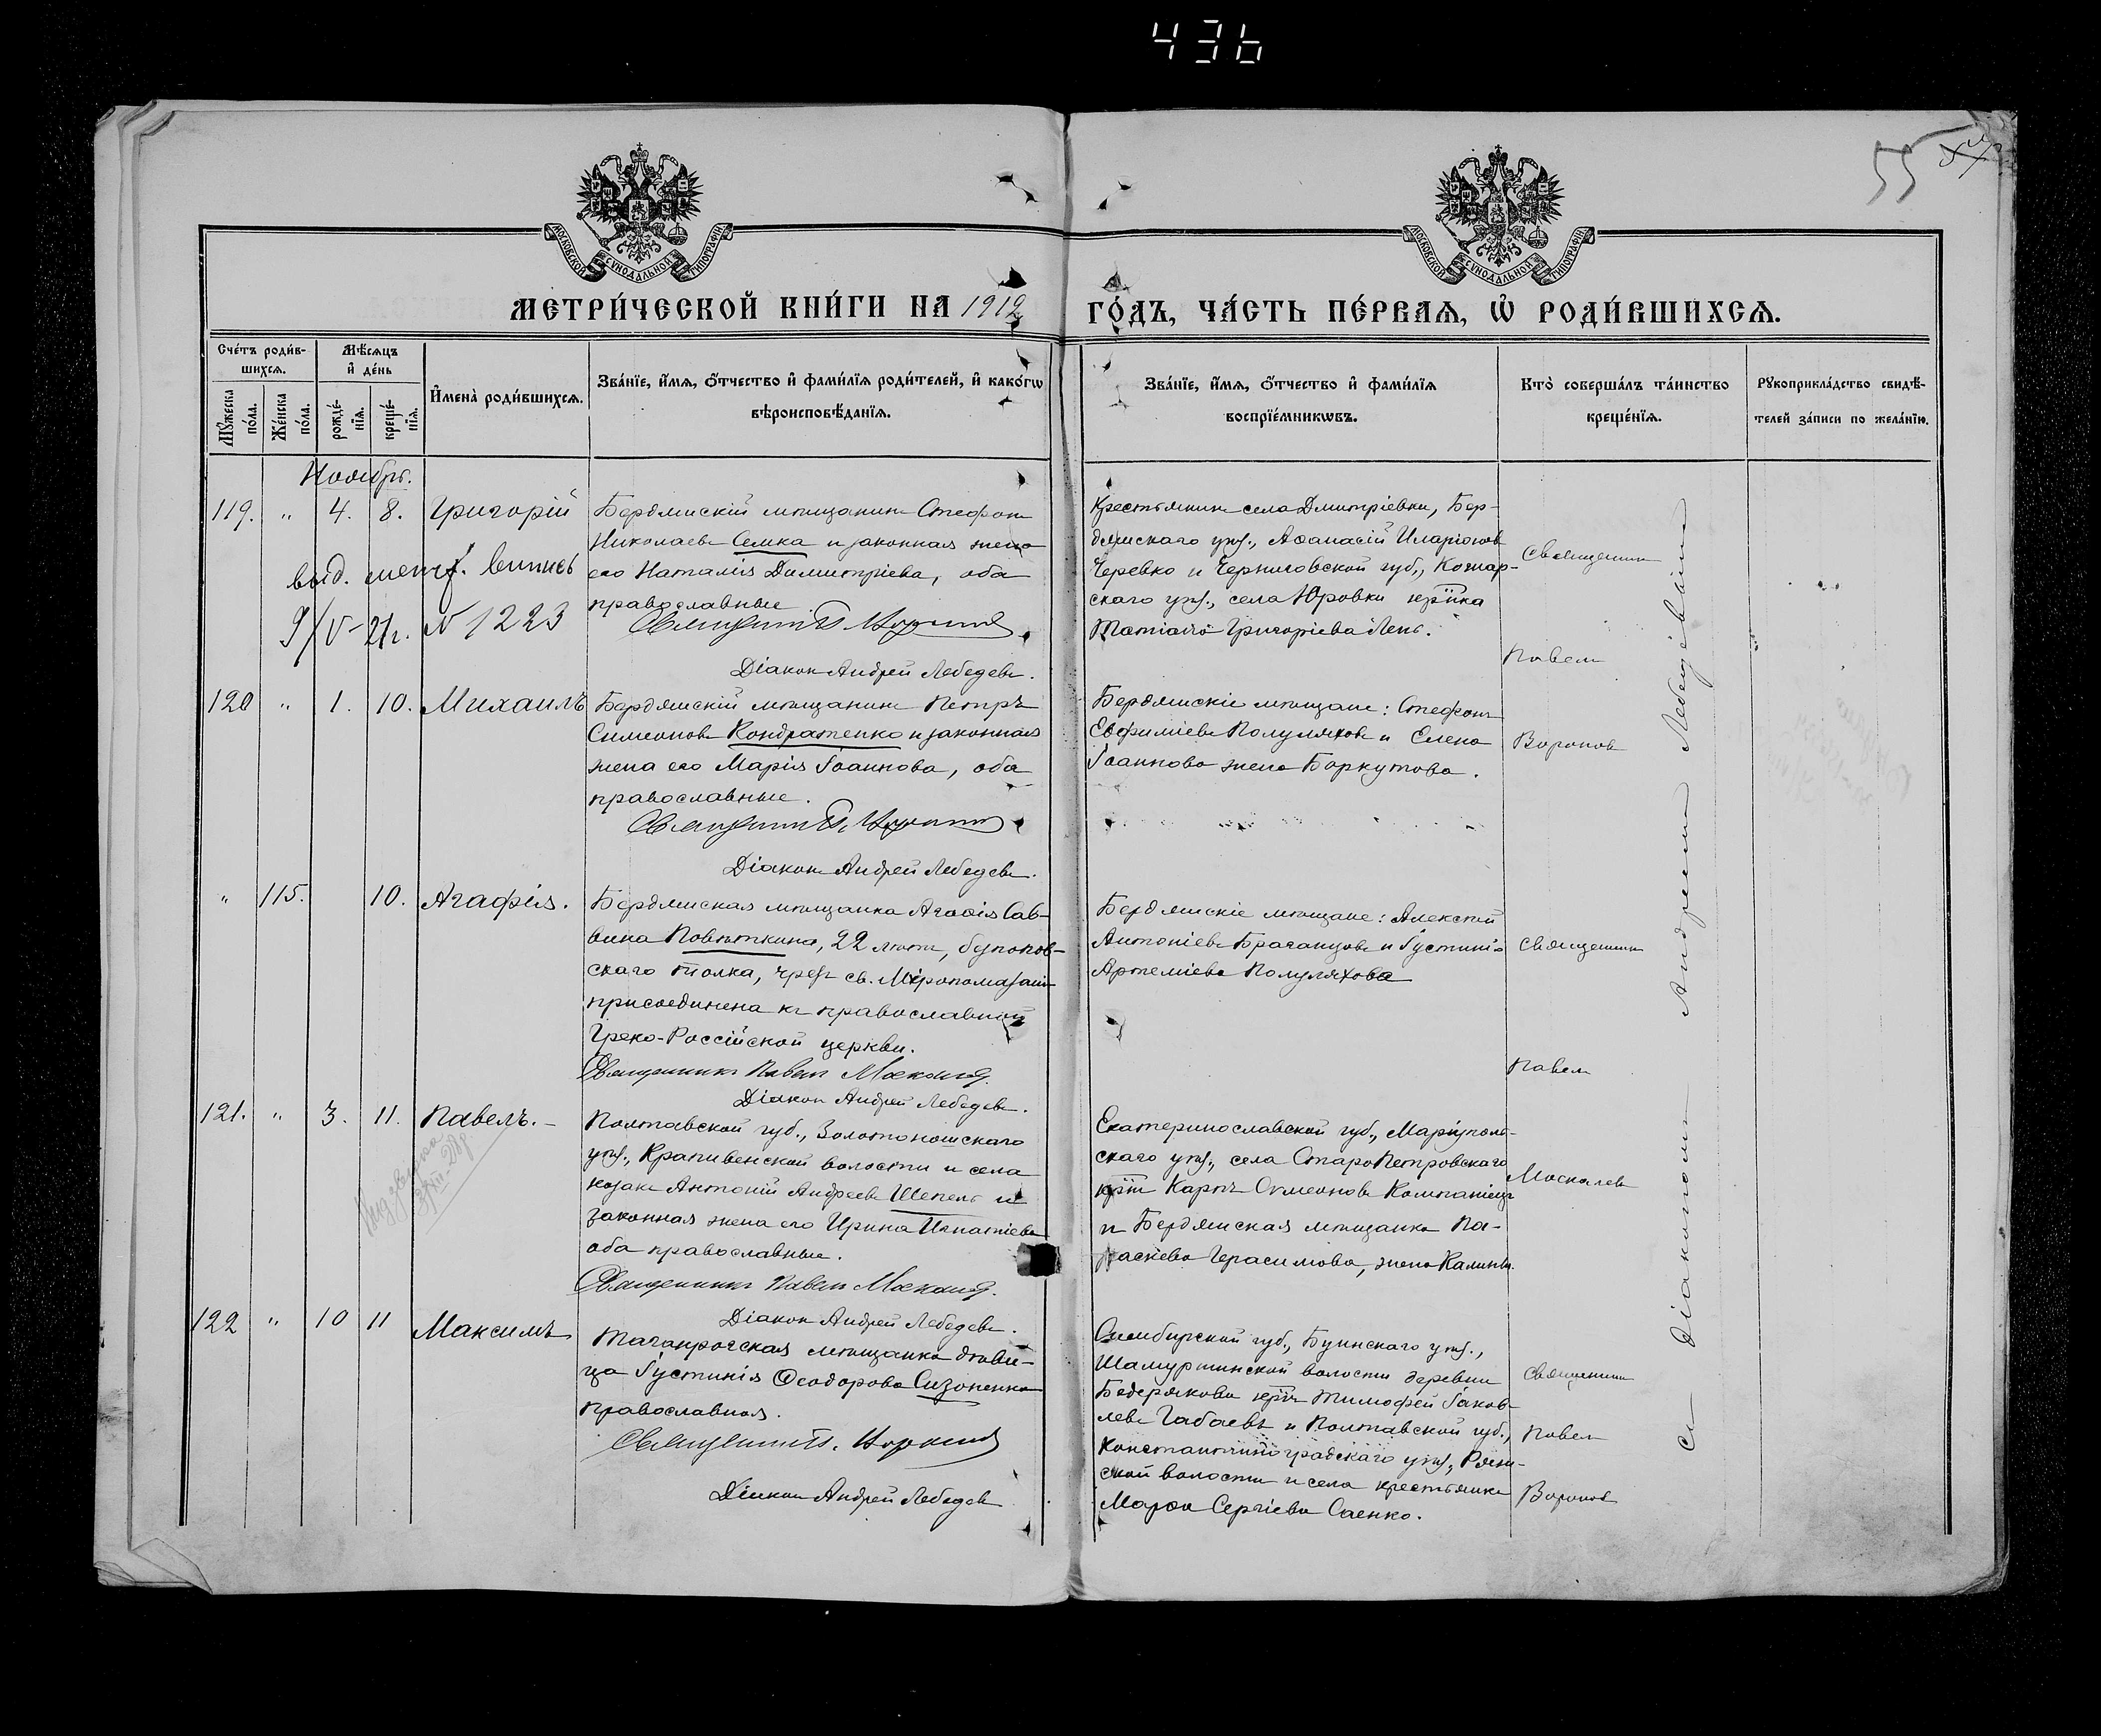 436
55
МОСКОВСКОЙ СѴНОДАЛЬНОЙ ТИПОГРАФІИ
МОСКОВСКОЙ СѴНОДАЛЬНОЙ ТИПОГРАФІИ
МЕТРИ́ЧЕСКОЙ КНИ́ГИ НА 1912
ГО́ДЪ, ЧА́СТЬ ПЕ́РВАѦ, Ѡ҆ РОДИ́ВШИХСѦ.
Счéтъ роди́в-
шихсѧ.
Мѣ́сѧцъ
и҆ де́нь
Мꙋ́жеска по́ла.
Же́нска по́ла.
рожде́-
нїѧ.
креще́-
нїѧ.
И҆мена̀ роди́вшихсѧ.
Зва́нїе, и҆́мѧ, ѻ҆́тчество и҆ фами́лїѧ роди́телей, и҆ како́гѡ
вѣроисповѣ́данїѧ.
Зва́нїе, и҆́мѧ, ѻ҆́тчество и҆ фами́лїѧ
воспрїе́мникѡвъ.
Кто̀ соверша́лъ та́инство
креще́нїѧ.
Рꙋкоприкла́дство свидѣ́-
телей за́писи по жела́нїю.
Ноябрь.
119. " 4. 8. Григорій
Бердянскій мѣщанинъ Стефанъ
Николаевъ Семка и законная жена
его Наталія Димитріева, оба
православные
выд. метр. выпись
9/V-21г. N 1223
Діаконъ Андрей Лебедевъ.
Крестьянинъ села Дмитріевки, Бер-
дянскаго уѣз., Аѳанасій Иларіоновъ
Черевко и Черниговской губ.,
скаго уѣз., села Юровки
Татіана Григоріева Лень.
Священникъ
Павелъ
Воронов
120 " 1. 10. Михаилъ
Бердянскій мѣщанинъ Петръ
Симеоновъ Кондратенко и законная
жена его Марія Іоаннова, оба
православные.
Діаконъ Андрей Лебедевъ.
Бердянскіе мѣщане: Стефанъ
Евфиміевъ Полуляховъ и Елена
Іоаннова жена Баркутова.
" 115. 10. Агафія.
Бердянская мѣщанка Агаѳія Сав-
вина Повѣткина, 22 лѣтъ, безпопов-
скаго толка, чрезъ св. Мѵропомазаніе
присоединена къ православной
Греко-Россійской церкви.
Священникъ Павелъ Москалевъ.
Діаконъ Андрей Лебедевъ.
Бердянскіе мѣщане: Алексѣй
Антоніевъ Браганцовъ и Іустинія
Артеміева Полуляхова
Священникъ
Павелъ
Москалевъ
121. " 3. 11. Павелъ.
Полтавской губ., Золотоношскаго
уѣз., Крапивенской волости и села
козакъ Антоній Андреевъ Шепель и
законная жена его Ирина Игнатіева
оба православные.
Священникъ Павелъ Москалевъ.
Діаконъ Андрей Лебедевъ.
Екатеринославской губ., Маріуполь-
скаго уѣз., села СтароПетровскаго
Карпъ Симеоновъ Компаніецъ
и Бердянская мѣщанка Па-
раскева Герасимова, жена
122 " 10 11 Максимъ
Таганрогская мѣщанка дѣви-
ца Іустинія Ѳеодорова Сизоненко
православная.
Діаконъ Андрей Лебедевъ
Симбирской губ., Буинскаго уѣз.,
Шамуршинской волости деревни
Тимофей Іаков-
левъ Габаевъ и Полтавской губ.,
Константиноградскаго уѣз.,
ской волости и села крестьянка
Марѳа Сергіева Саенко.
Священникъ
Павелъ
Воронов
съ діакономъ Андреемъ Лебедевымъ